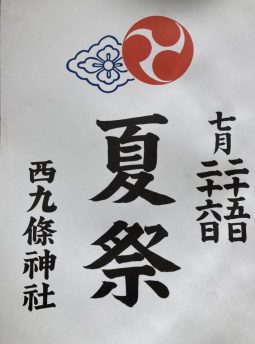 七月二十五日
二十六日
夏祭
西九條神社